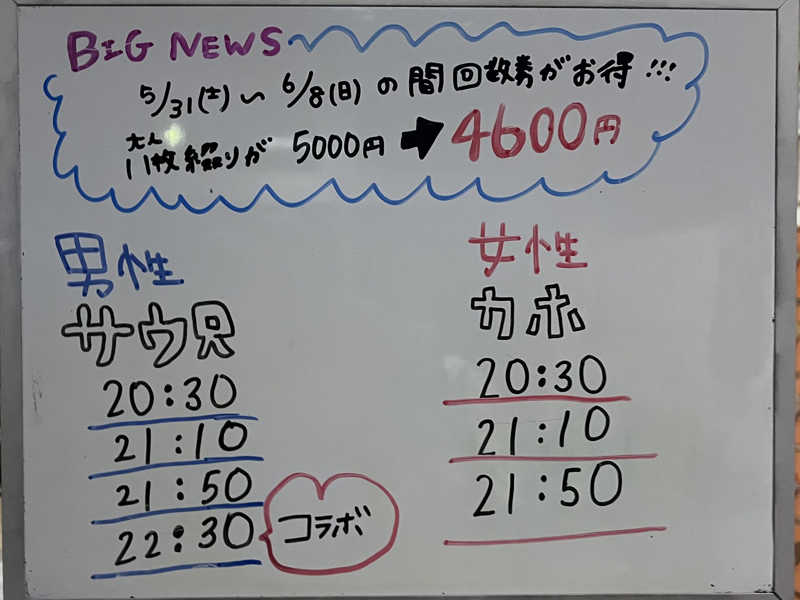 BIG NEWS
5/31(土)〜6/8(日)の間回数券がお得!!!
大人
11枚綴りが 5000円➡4600円
男性
サウ兄
20:30
21:10
21:50
22:30
コラボ
女性
カホ
20:30
21:10
21:50